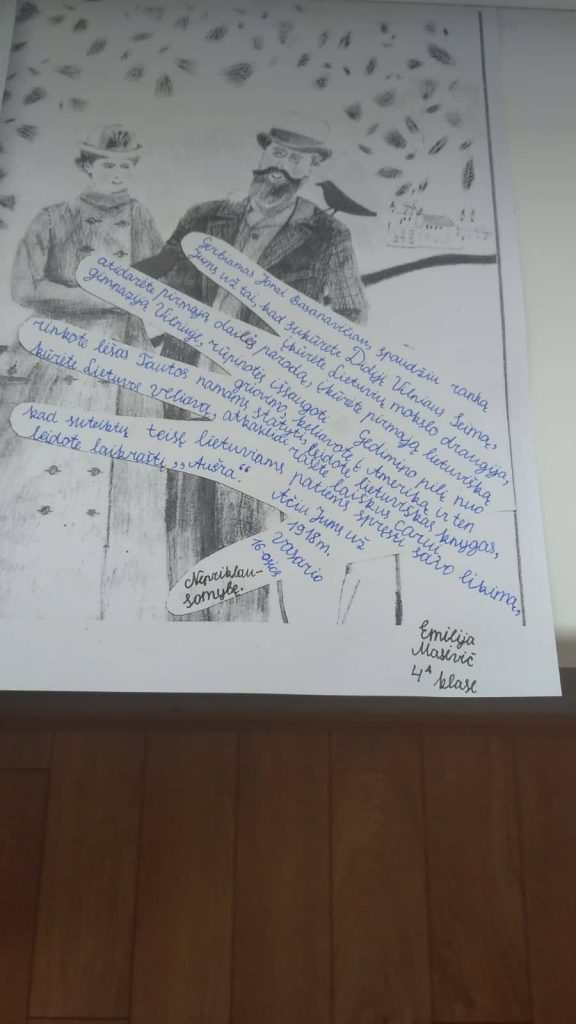 Gerbiamas Jonai Basanavičiau, spaudžiu ranką
Jums už tai, kad sukūrėte Didįjį Vilniaus Seimą,
įkūrėte Lietuvių mokslo draugiją,
atidarėt pirmąją dailės parodą, įkūrėte pirmąją lietuvišką
gimnaziją Vilniuje, rūpinotės išsaugoti Gedimino pilį nuo
griovimo, keliavote į Ameriką ir ten
rinkote lėšas Tautos namams statyti, leidote lietuviškas knygas,
kūrėte Lietuvos vėliavą, atkakliai rašėte laiškus carui,
kad suteiktų teisę lietuviams patiems spręsti savo likimą,
leidote laikraštį „Aušra".
Ačiū Jums už
1918m.
Vasario
16 osios
Nepriklau-
somybę.
Emilija
Masevič
4ᴬ klasė